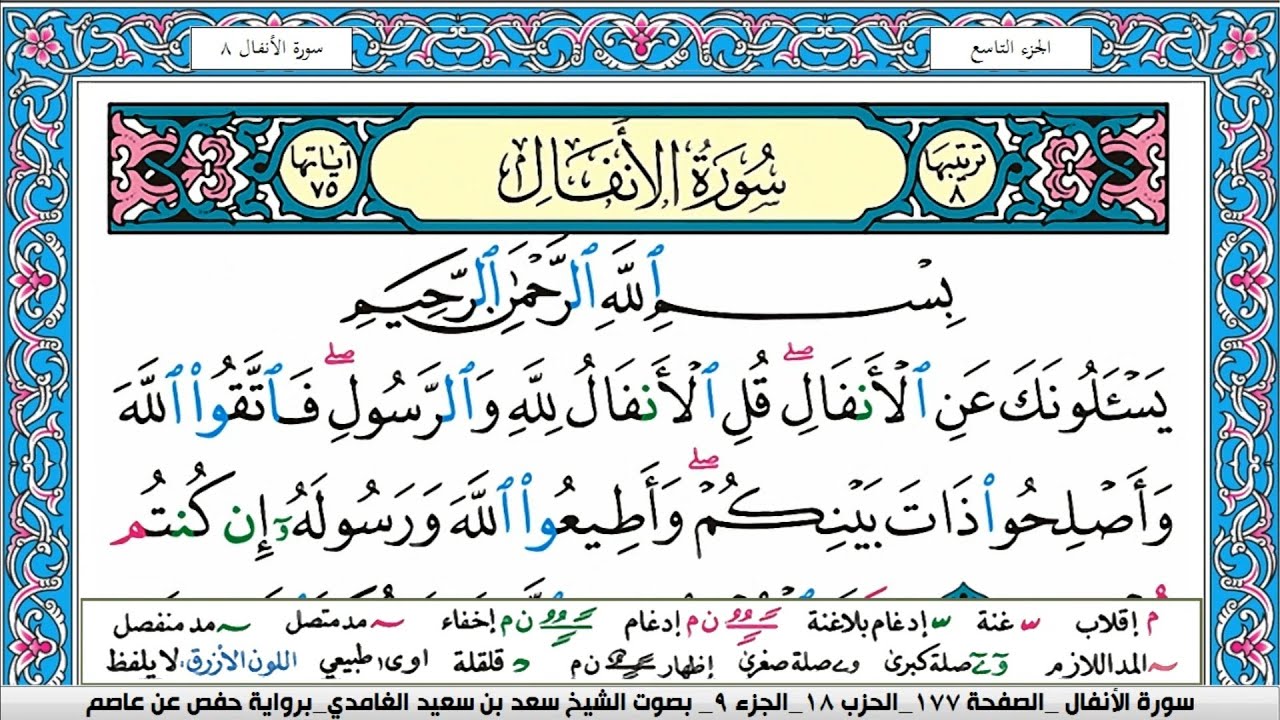 الجزء التاسع
سورة الأنفال ٨
ترتيبها ٨
سُورَةُ الأَنفَالِ
آياتها ٧٥
بِسْمِ ٱللَّهِ ٱلرَّحْمَٰنِ ٱلرَّحِيمِ
يَسْـَٔلُونَكَ عَنِ ٱلْأَنفَالِ ۖ قُلِ ٱلْأَنفَالُ لِلَّهِ وَٱلرَّسُولِ ۖ فَٱتَّقُوا۟ ٱللَّهَ
وَأَصْلِحُوا۟ ذَاتَ بَيْنِكُمْ ۖ وَأَطِيعُوا۟ ٱللَّهَ وَرَسُولَهُۥٓ إِن كُنتُم
م إقلاب س غنة س إدغام بلاغنة ن م إدغام ن م إخفاء مد متصل مد منفصل
المد اللازم صلة كبرى صلة صغرى ن م إظهار د قلقلة اوى طبيعي اللون الأزرق: لا يلفظ
سورة الأنفال _الصفحة ١٧٧_الحزب ١٨_الجزء ٩_ بصوت الشيخ سعد بن سعيد الغامدي_برواية حفص عن عاصم